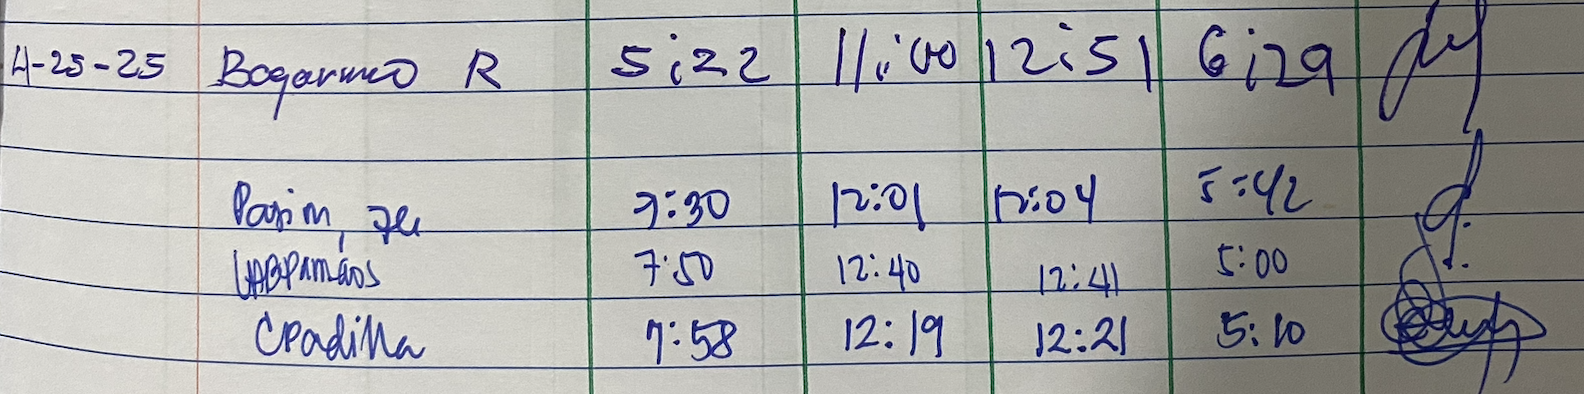 4-25-25 R 5:22 11:00 12:51 6:29
9:30 12:01 12:04 5:42
7:50 12:40 12:41 5:00
CPadilla 7:58 12:19 12:21 5:10